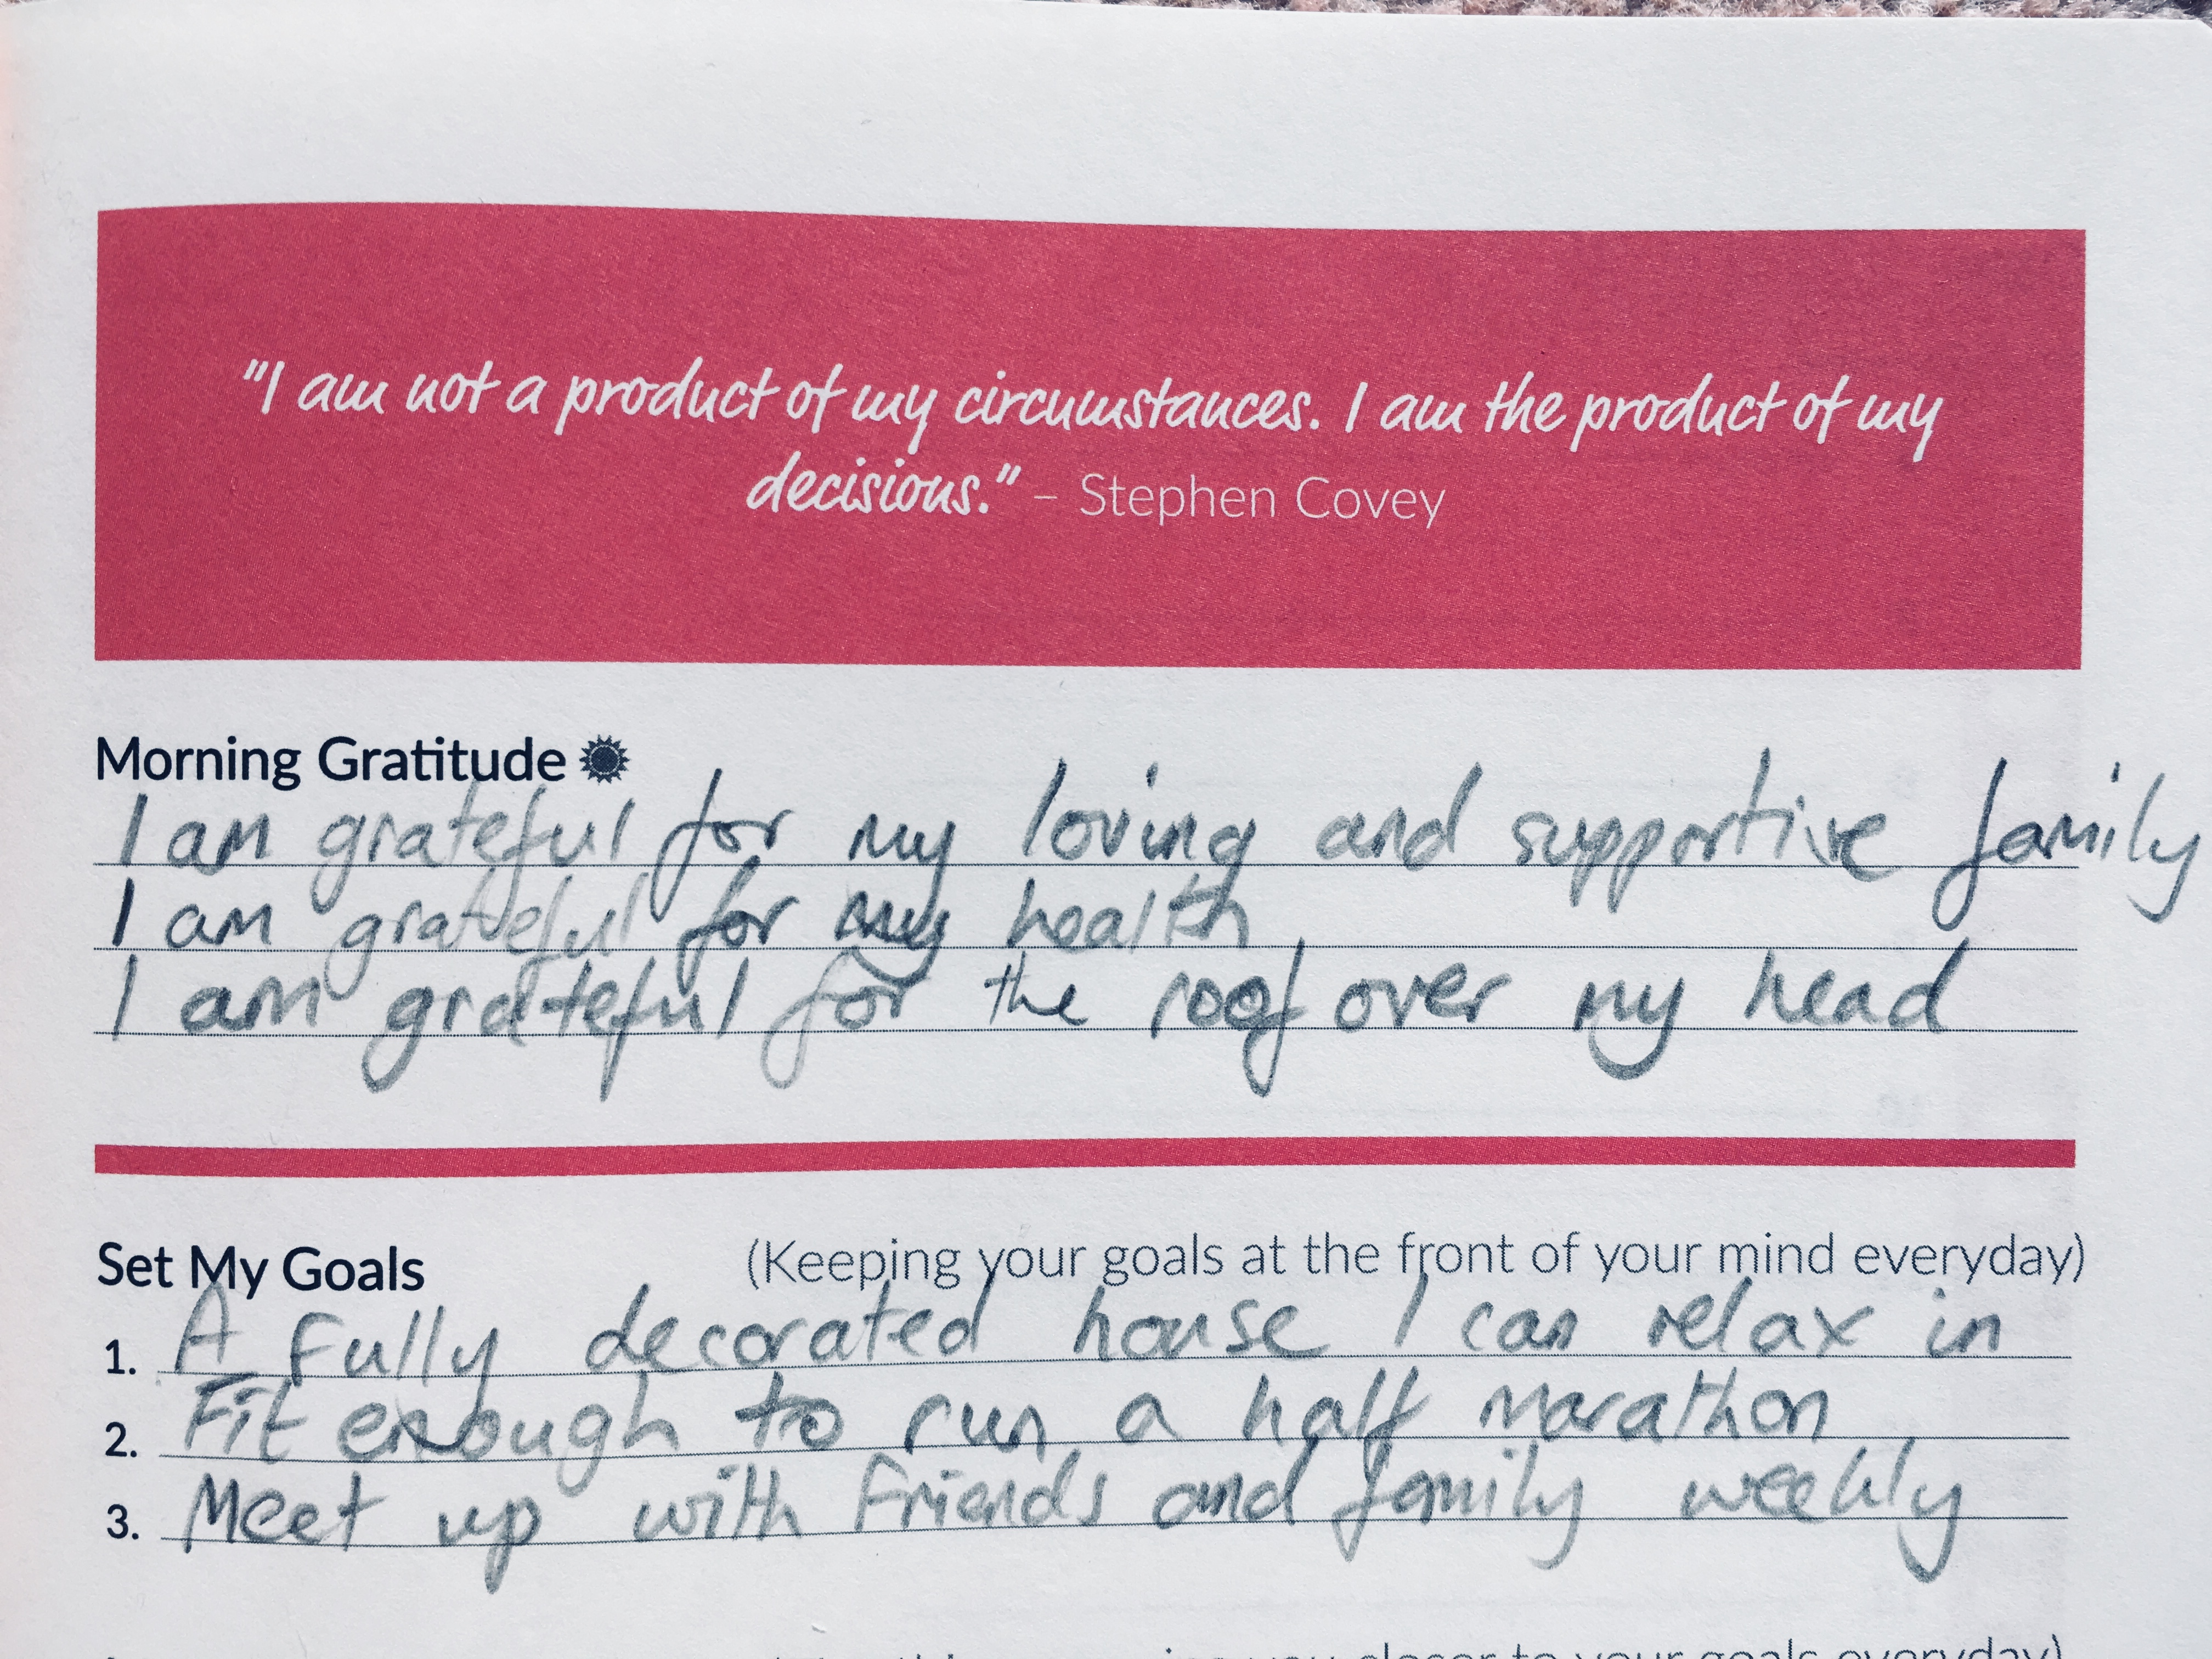 "I am not a product of my circumstances. I am the product of my
decisions." – Stephen Covey
Morning Gratitude
I am grateful for my loving and supportive family
I am grateful for my health
I am grateful for the roof over my head
Set My Goals (Keeping your goals at the front of your mind everyday)
1. A fully decorated house I can relax in
2. Fit enough to run a half marathon
3. Meet up with friends and family weekly
you closer to your goals everyday)